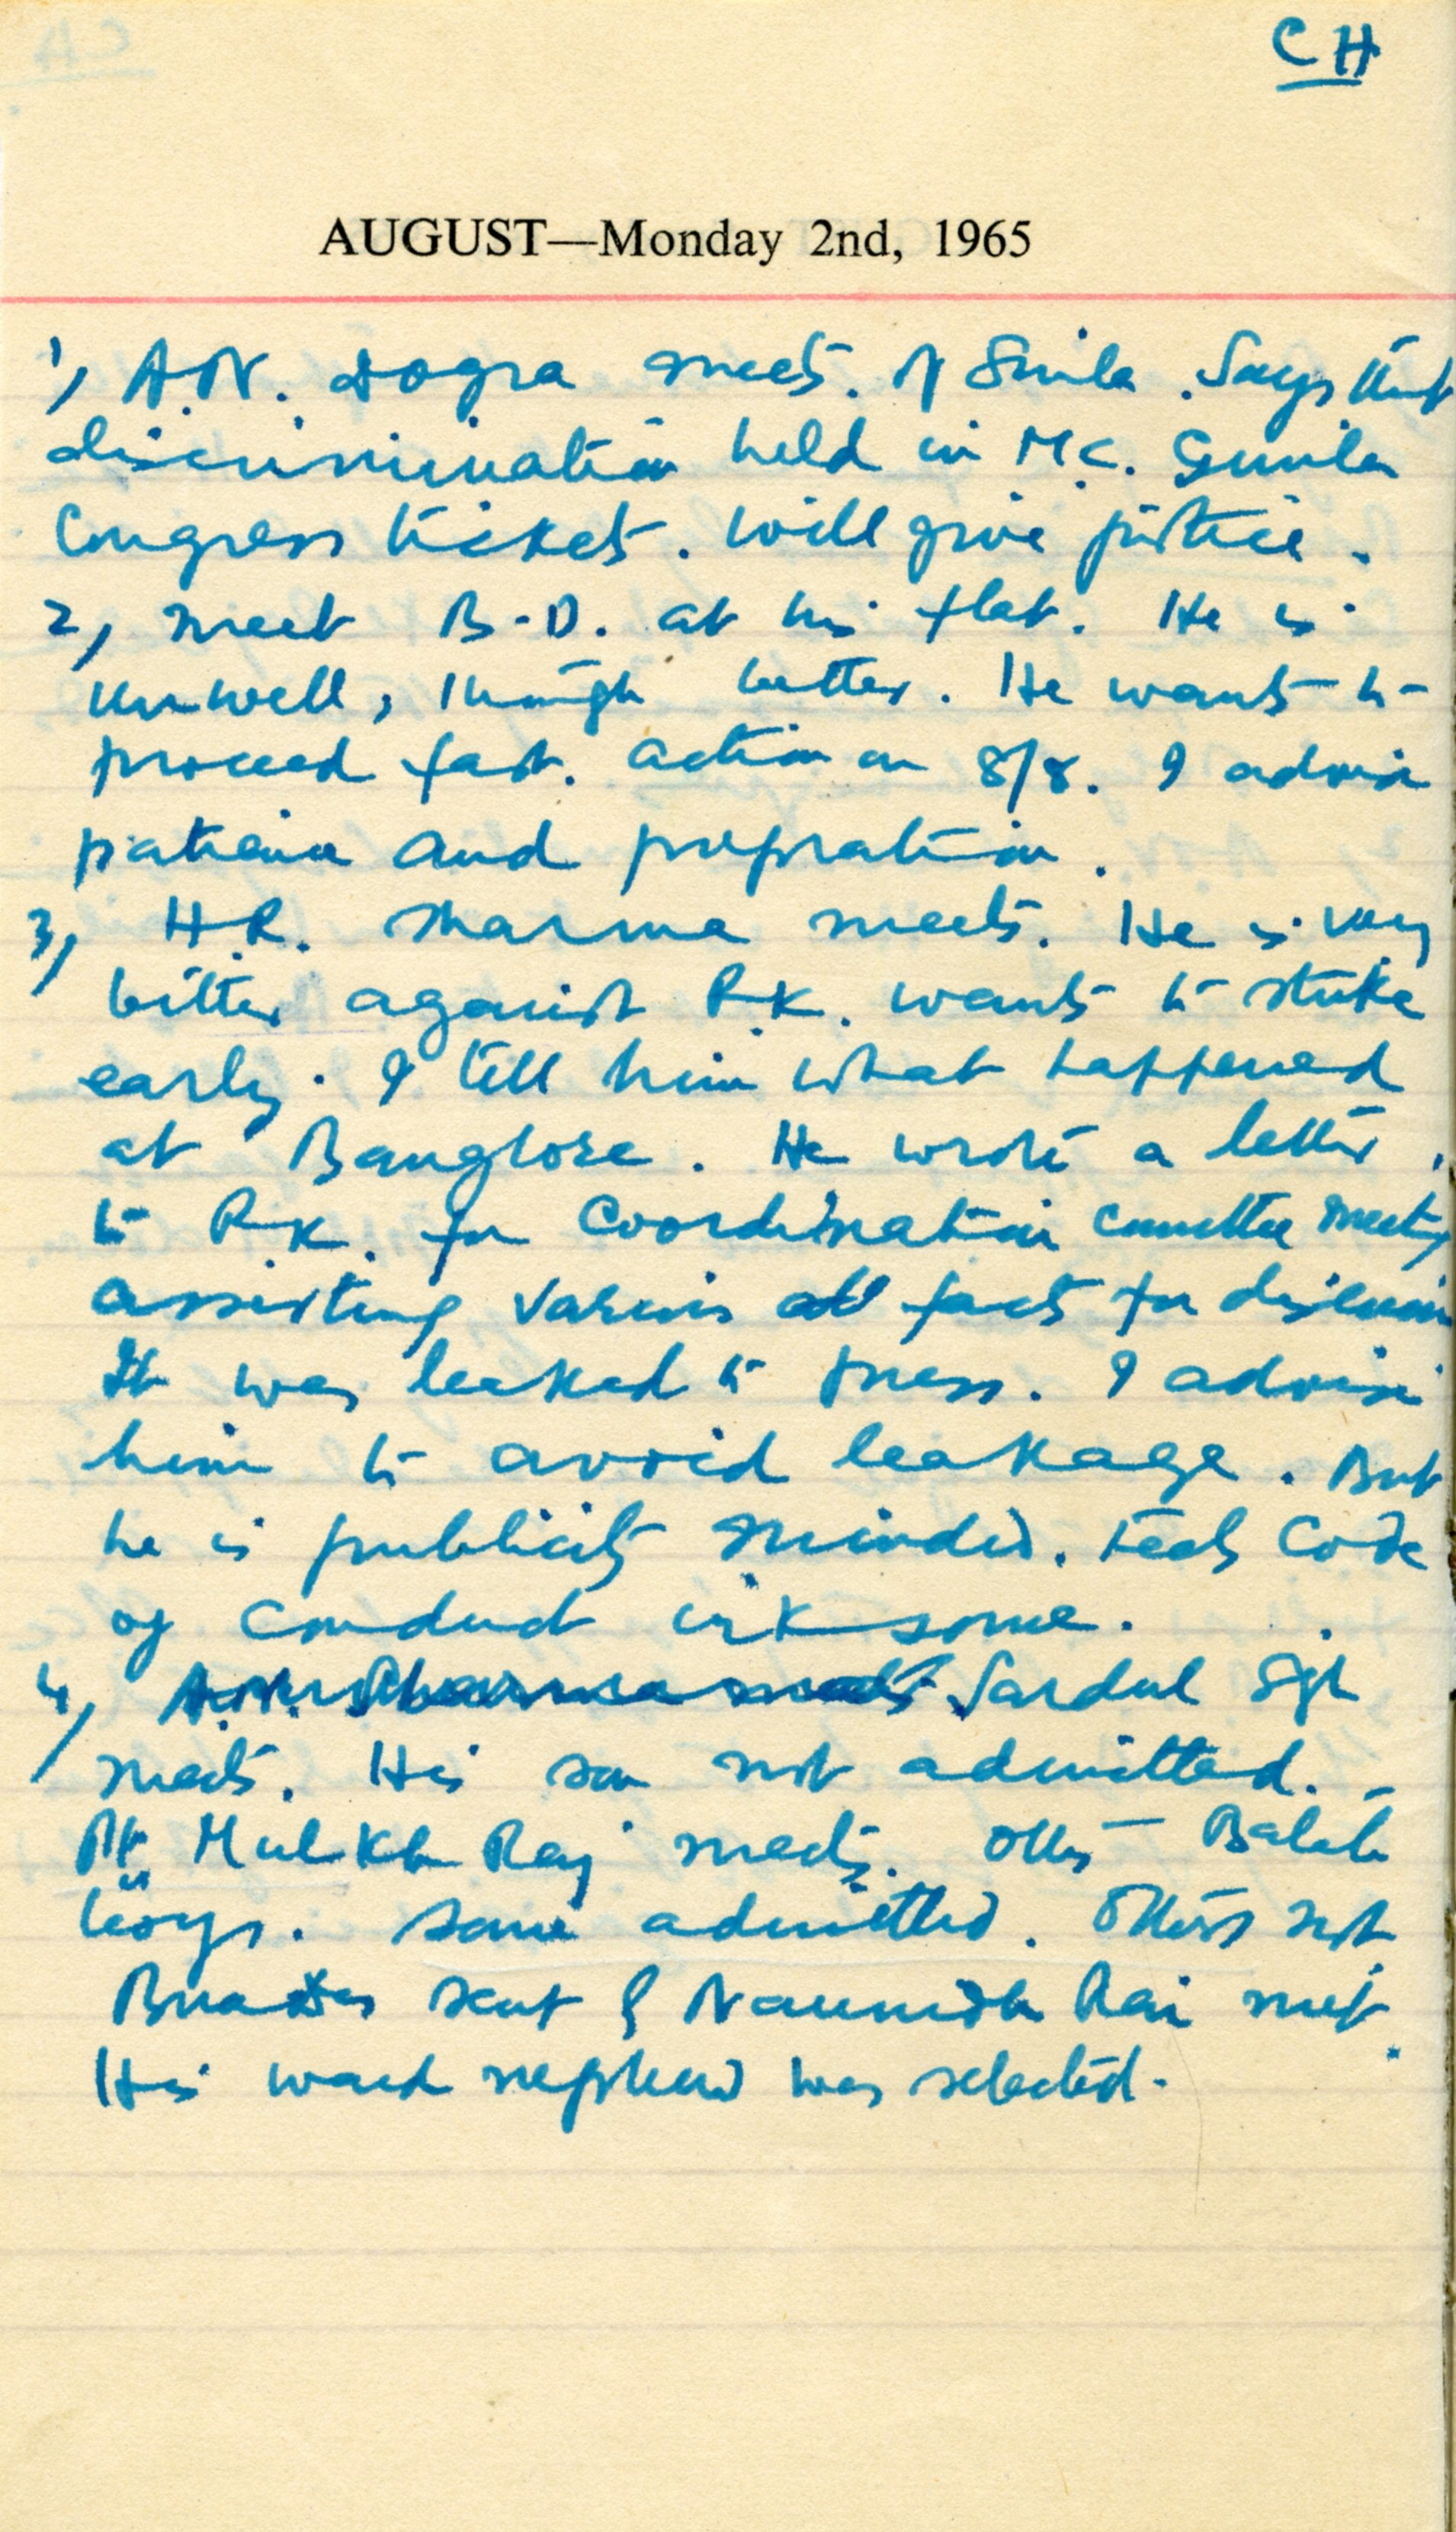 CH
AUGUST—Monday 2nd, 1965
1, A.N. Dogra meets. Of Simla. Says that
discrimination held in M.C. Simla
Congress tickets. Will give justice.
2, Meet B.D. at his flat. He is
unwell, though better. He wants to
proceed fast. Action on 8/8. I advise
patience and prepration.
3, H.R. Sharma meets. He is very
bitter against R.K. wants to strike
early. I tell him what happened
at Banglore. He wrote a letter
to R.K. for Coordination Committee meeting
asserting various facts for discussion
It was leaked to press. I advise
him to avoid leakage. But
he is publicity minded. Feels Code
of Conduct irksome.
4, A.N. Sharma meets Sardul Sgh
meets. His son not admitted.
Pt. Mulkh Raj meets. Other Balah
boys. Some admitted. Others not
sent & Naunidh Rai met.
His ward nephew was selected.